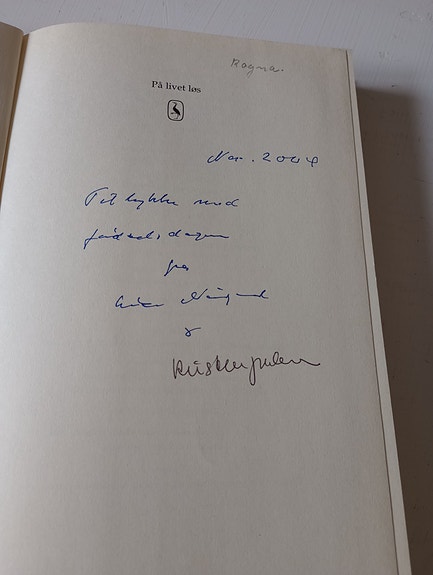 Ragna.
På livet løs
Nov. 2004
Til lykke med
fødselsdagen
fra
&